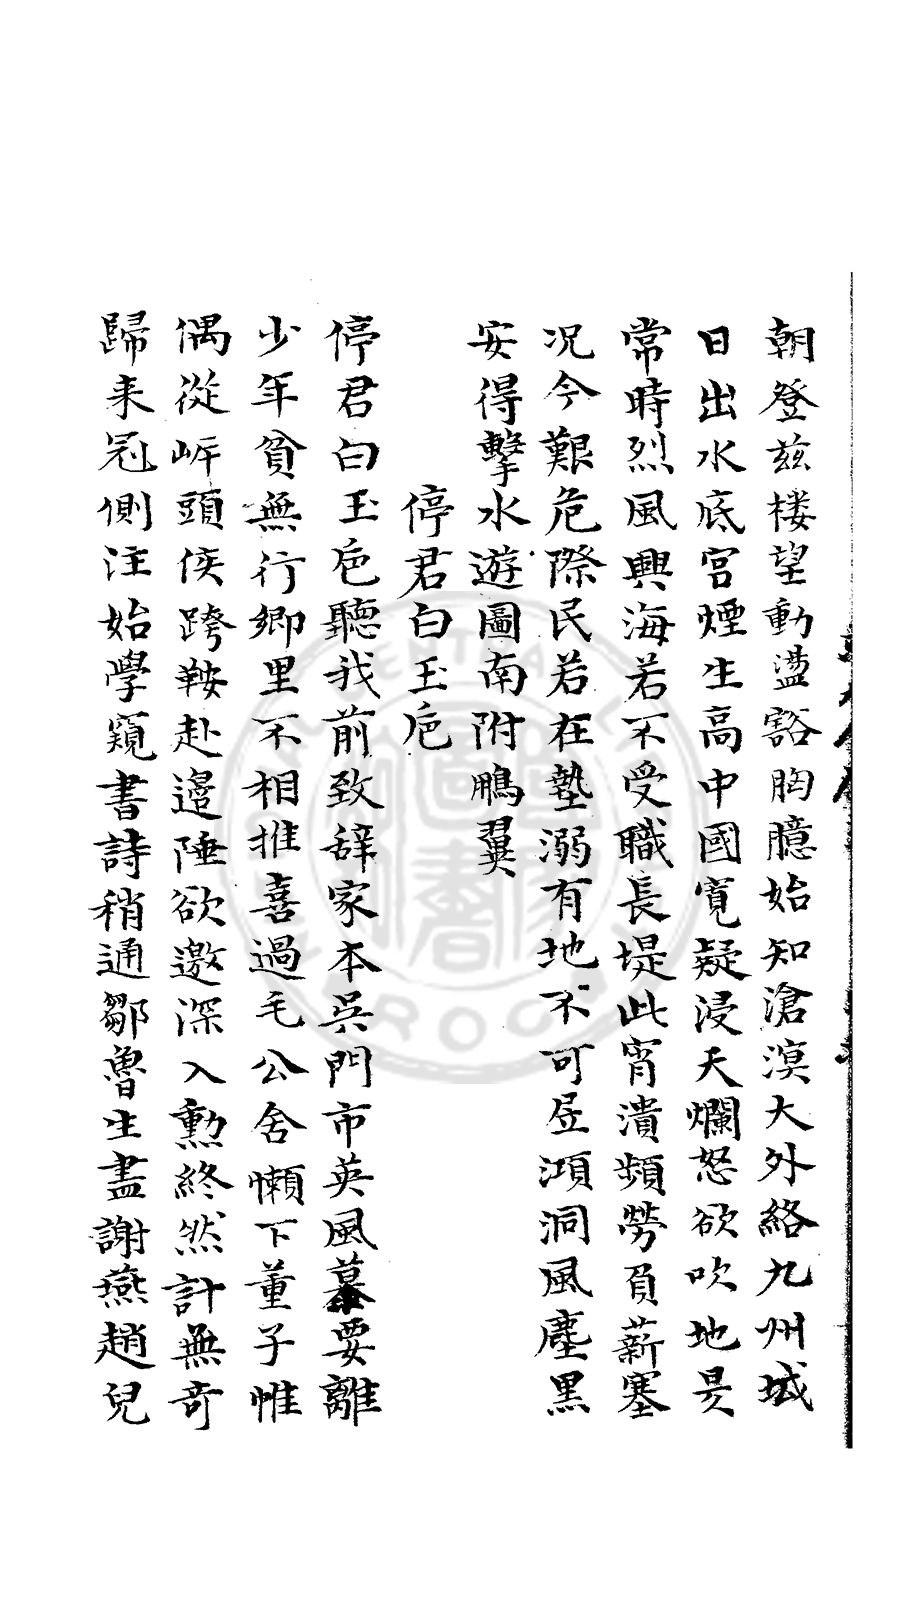 朝登玆楼望動盪豁胸臆始知滄溟大外絡九州城
日出水底宮煙生高中國寬疑浸天爛怒欲吹地昃
常時烈風興海若不受職長堤此宵潰頻勞負薪塞
况今艱危際民若在墊溺有地不可㞐澒洞風塵黑
安得擊水遊圖南附鵬翼
停君白玉巵
停君白玉巵聽我前致辞家本吳門市英風慕要離
少年貧無行鄉里不相推喜過毛公舍懶下董子帷
偶從岍頭俠跨鞍赴邉陲欲邀深入勲終然計無奇
歸来冠側注始學窺書詩稍通鄒魯生盡謝燕趙兒